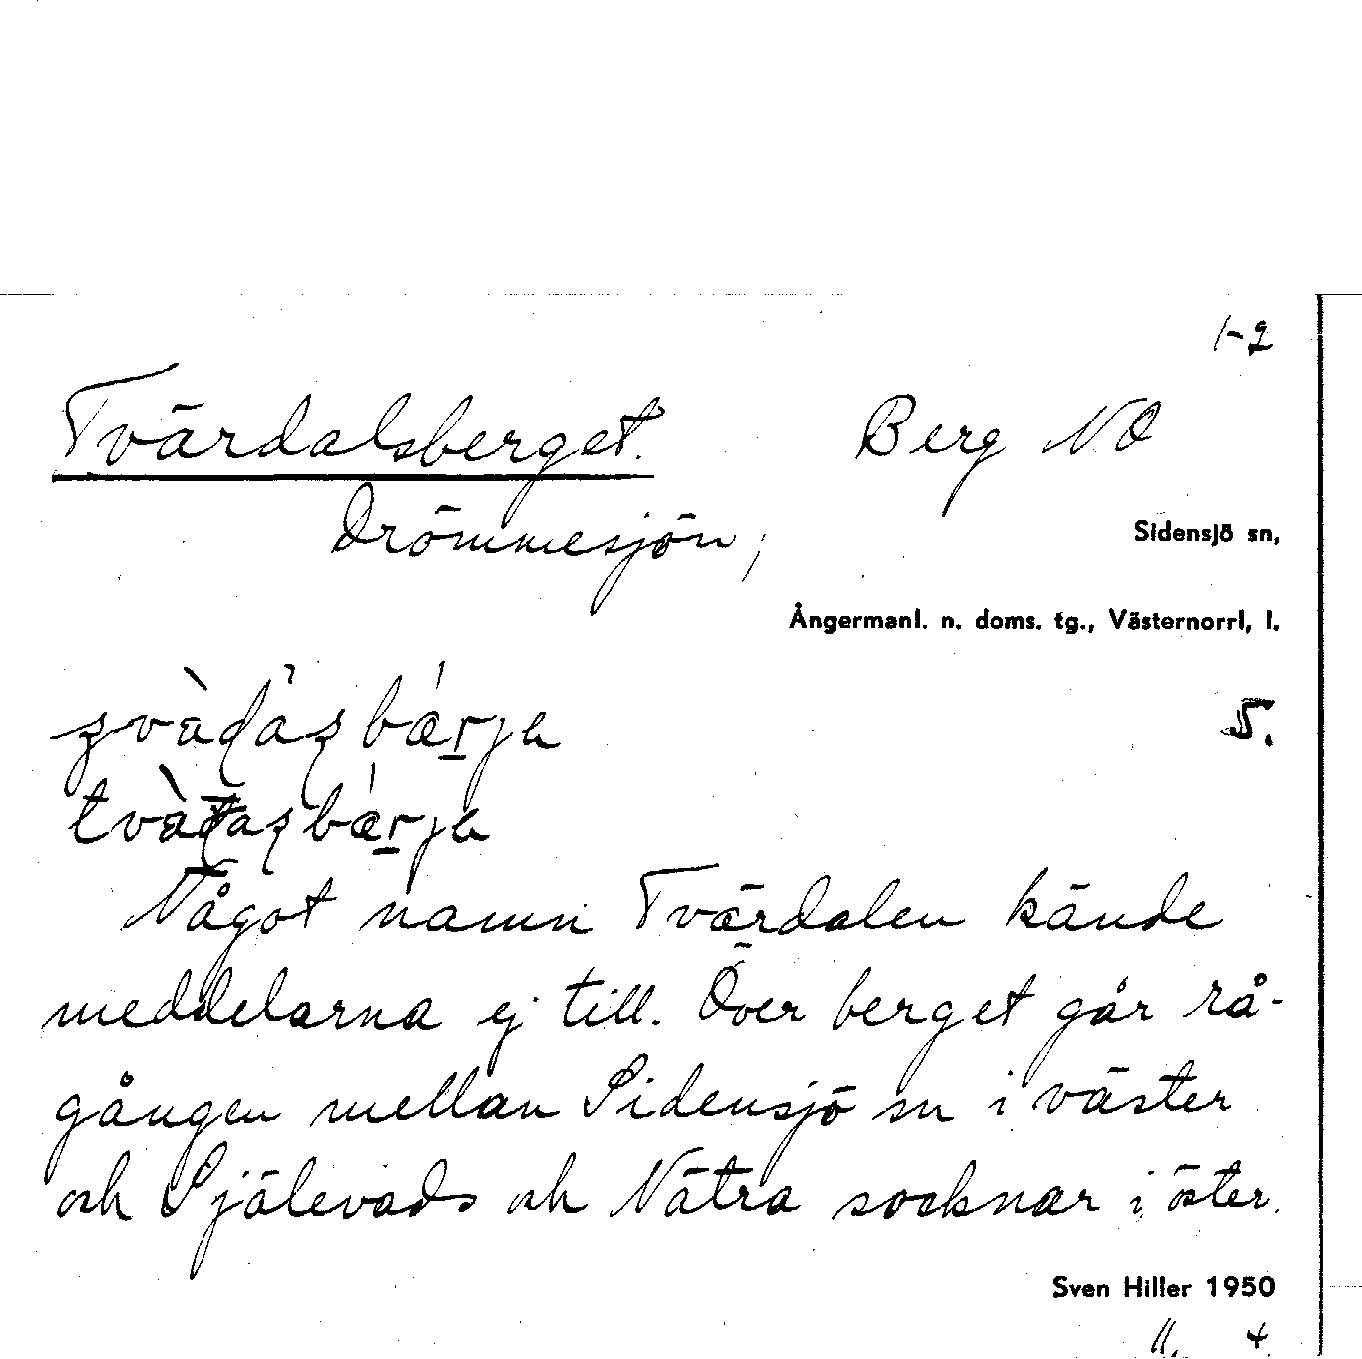 1-2
Tvärdalsberget. Berg NO
Drömmesjön;
Sidensjö sn,
Ångermanl. n. doms. tg., Västernorrl. l.
5.
Något namn Tvärdalen kände
meddelarna ej till. Över berget går rå-
gången mellan Sidensjö sn i väster
och Själevads och Nätra socknar i öster.
Sven Hiller 1950